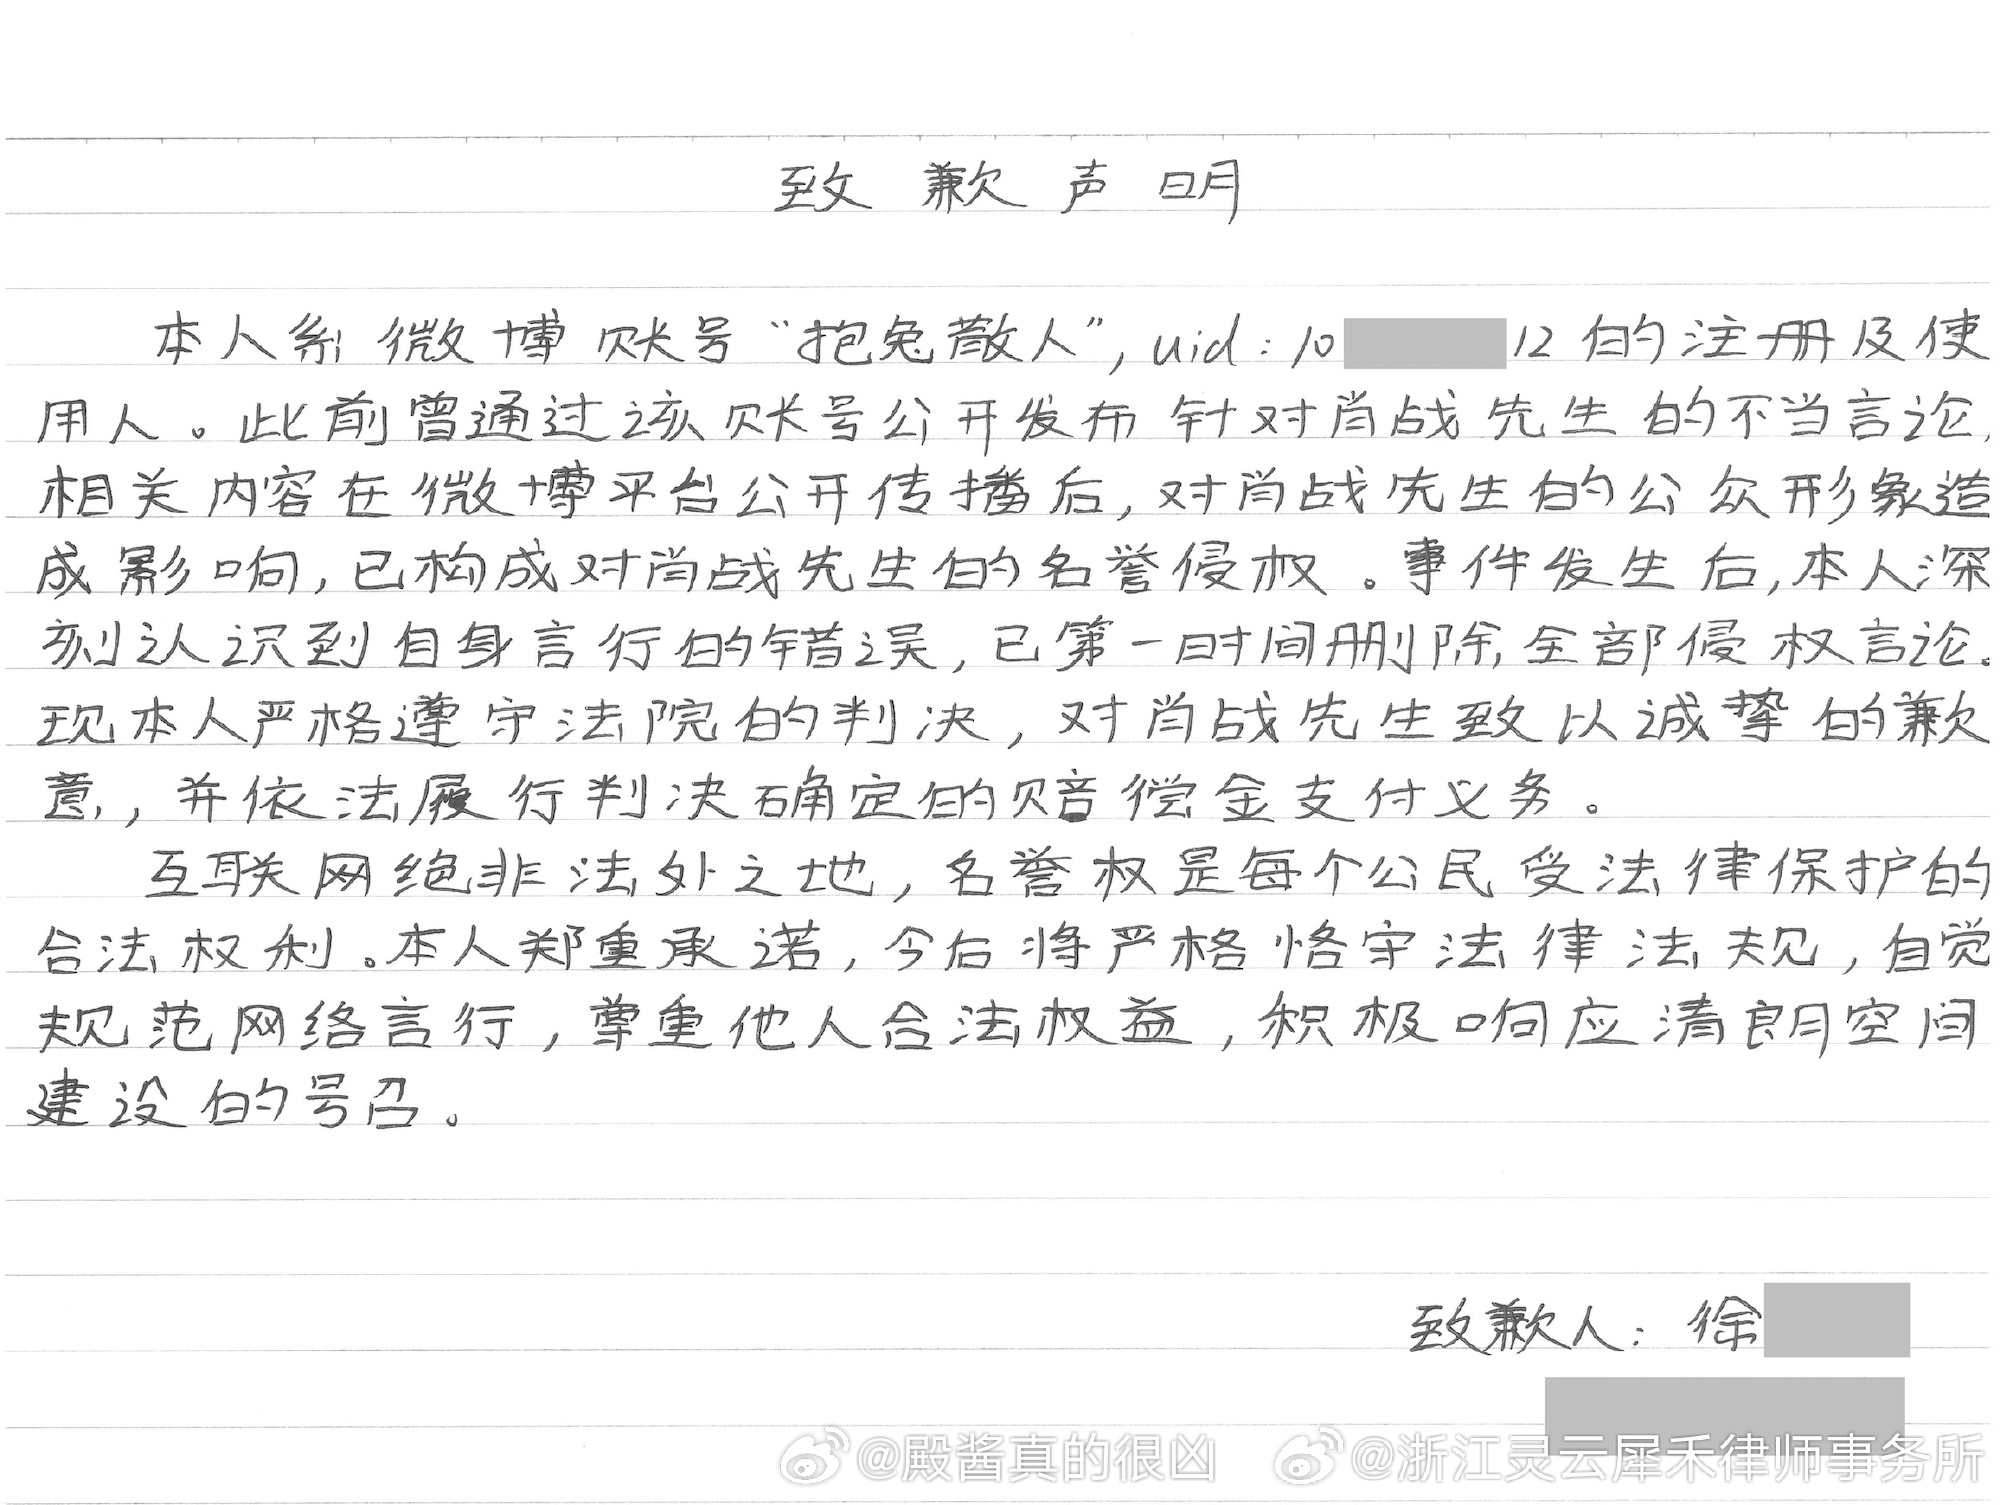 致歉声明
本人系微博账号“抱兔散人”，uid：10 12的注册及使
用人。此前曾通过该账号公开发布针对肖战先生的不当言论，
相关内容在微博平台公开传播后，对肖战先生的公众形象造
成影响，已构成对肖战先生的名誉侵权。事件发生后，本人深
刻认识到自身言行的错误，已第一时间删除全部侵权言论。
现本人严格遵守法院的判决，对肖战先生致以诚挚的歉
意，并依法履行判决确定的赔偿金支付义务。
互联网绝非法外之地，名誉权是每个公民受法律保护的
合法权利。本人郑重承诺，今后将严格恪守法律法规，自觉
规范网络言行，尊重他人合法权益，积极响应清朗空间
建设的号召。
致歉人：徐
@殿酱真的很凶 @浙江灵云犀禾律师事务所